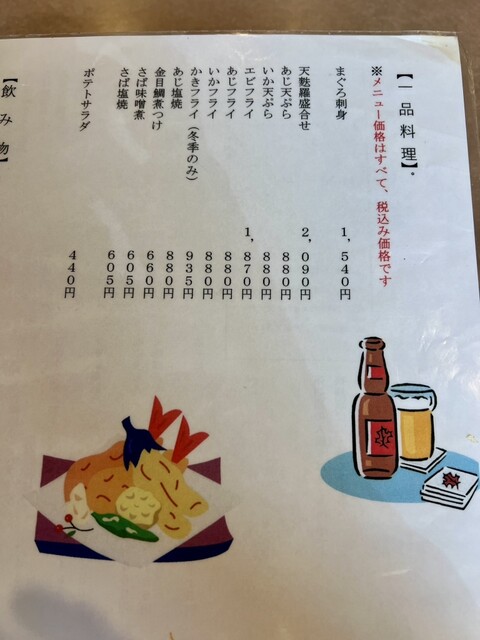 【一品料理】。
※メニュー価格はすべて、税込み価格です
まぐろ刺身 1,540円
天麩羅盛合せ 2,090円
あじ天ぷら 880円
いか天ぷら 880円
エビフライ 1,870円
あじフライ 880円
いかフライ 880円
かきフライ(冬季のみ) 935円
あじ塩焼 880円
金目鯛煮つけ 660円
さば味噌煮 605円
さば塩焼 605円
ポテトサラダ 440円
【飲み物】